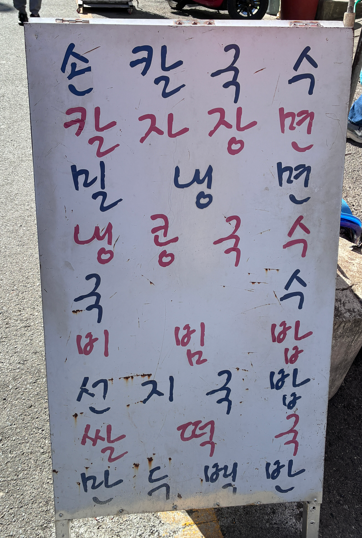 손칼국수
칼짜장면
밀냉면
냉콩국수
국수
비빔밥
선지국밥
쌀떡국
만두백반